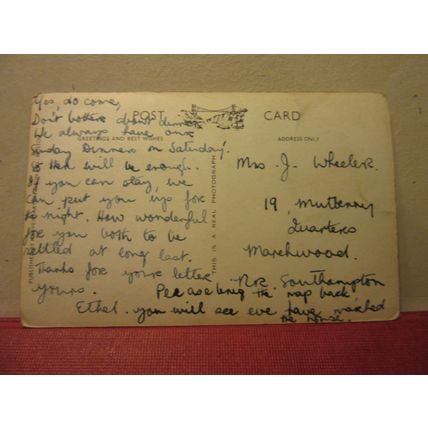 Yes, do come,
Don't bother about dinner
We always have our
Sunday Dinners on Saturday!
so there will be enough.
If you can stay, we
can put you up for
to night. How wonderful
for you both to be
settled at long last.
Thanks for your letter
yours.
Ethel.
POST CARD
GREETINGS AND BEST WISHES
ADDRESS ONLY
THIS IS A REAL PHOTOGRAPH
Mrs J. Wheeler.
19, Mulberry
Quarters
Marchwood.
Nr. Southampton
Please bring the map back
you will see we have marked
the house.